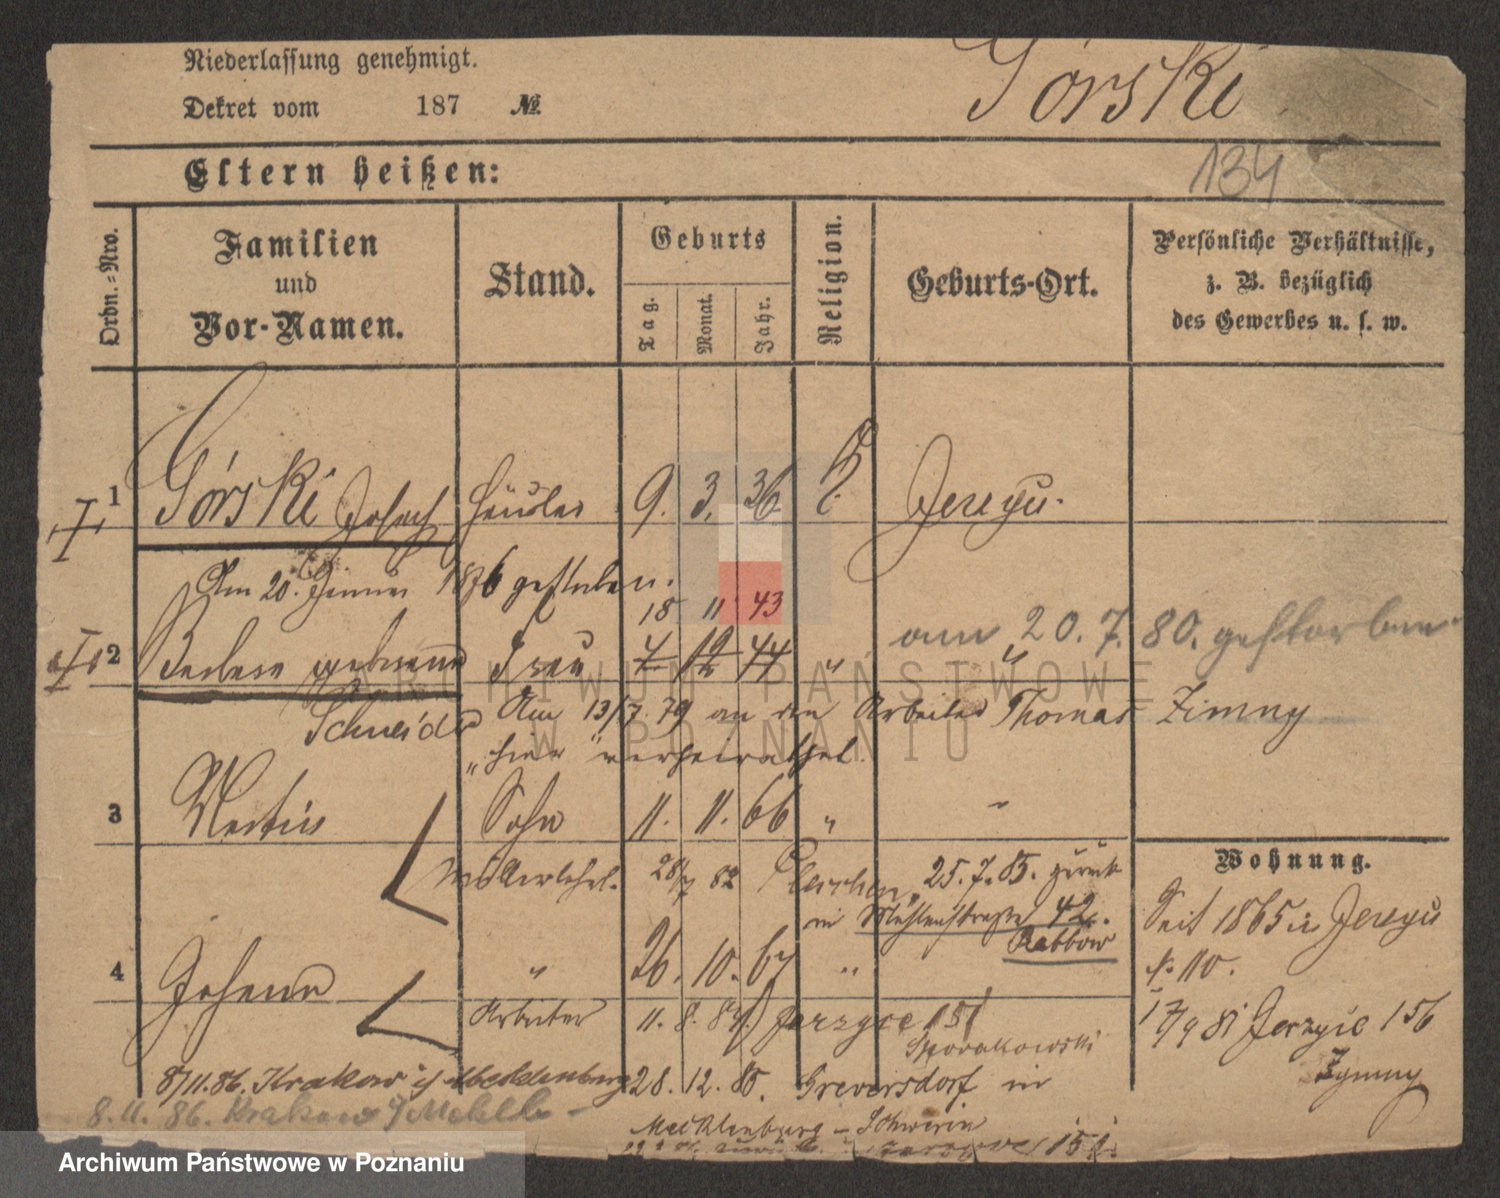 Niederlassung genehmigt.
Dekret vom 187 №.
Górski
134
Eltern heißen:
Ordn.-Nro.
Familien und Vor-Namen.
Stand.
Geburts
Tag.
Monat.
Jahr.
Religion.
Geburts-Ort.
Persönliche Verhältnisse,
z. B. bezüglich
des Gewerbes u. s. w.
1 Górski Joseph Häusler 9. 3. 36 k. Jerzyce.
Am 20. Januar 1876 gestorben.
18 11 43
2 geborene Frau 7 12 44 " "
am 20. 7. 80. gestorben
Schneider Am 13/7. 79 an den Arbeiter Thomas Zimny
hier verheirathet.
3 Martin Sohn 11. 11. 66 " "
Müllerlehrl. 28/7 82 25. 7. 85. zurück
in Mühlenstraße 42.
Rabbow
Wohnung.
Seit 1865 in Jerzyce
N. 110.
4 Johann " 26. 10. 67 "
Arbeiter 11. 8. 84. Jerzyce 151
17/9 81 Jerzyce 156
Zymny
8/11. 86. Krakow i/ Mecklenburg 28. 12. 85. Greversdorf in
8. 11. 86. Krakow i/ Meklb
Mecklenburg - Schwerin
Jerzyce 151.
ARCHIWUM PAŃSTWOWE
W POZNANIU
Archiwum Państwowe w Poznaniu